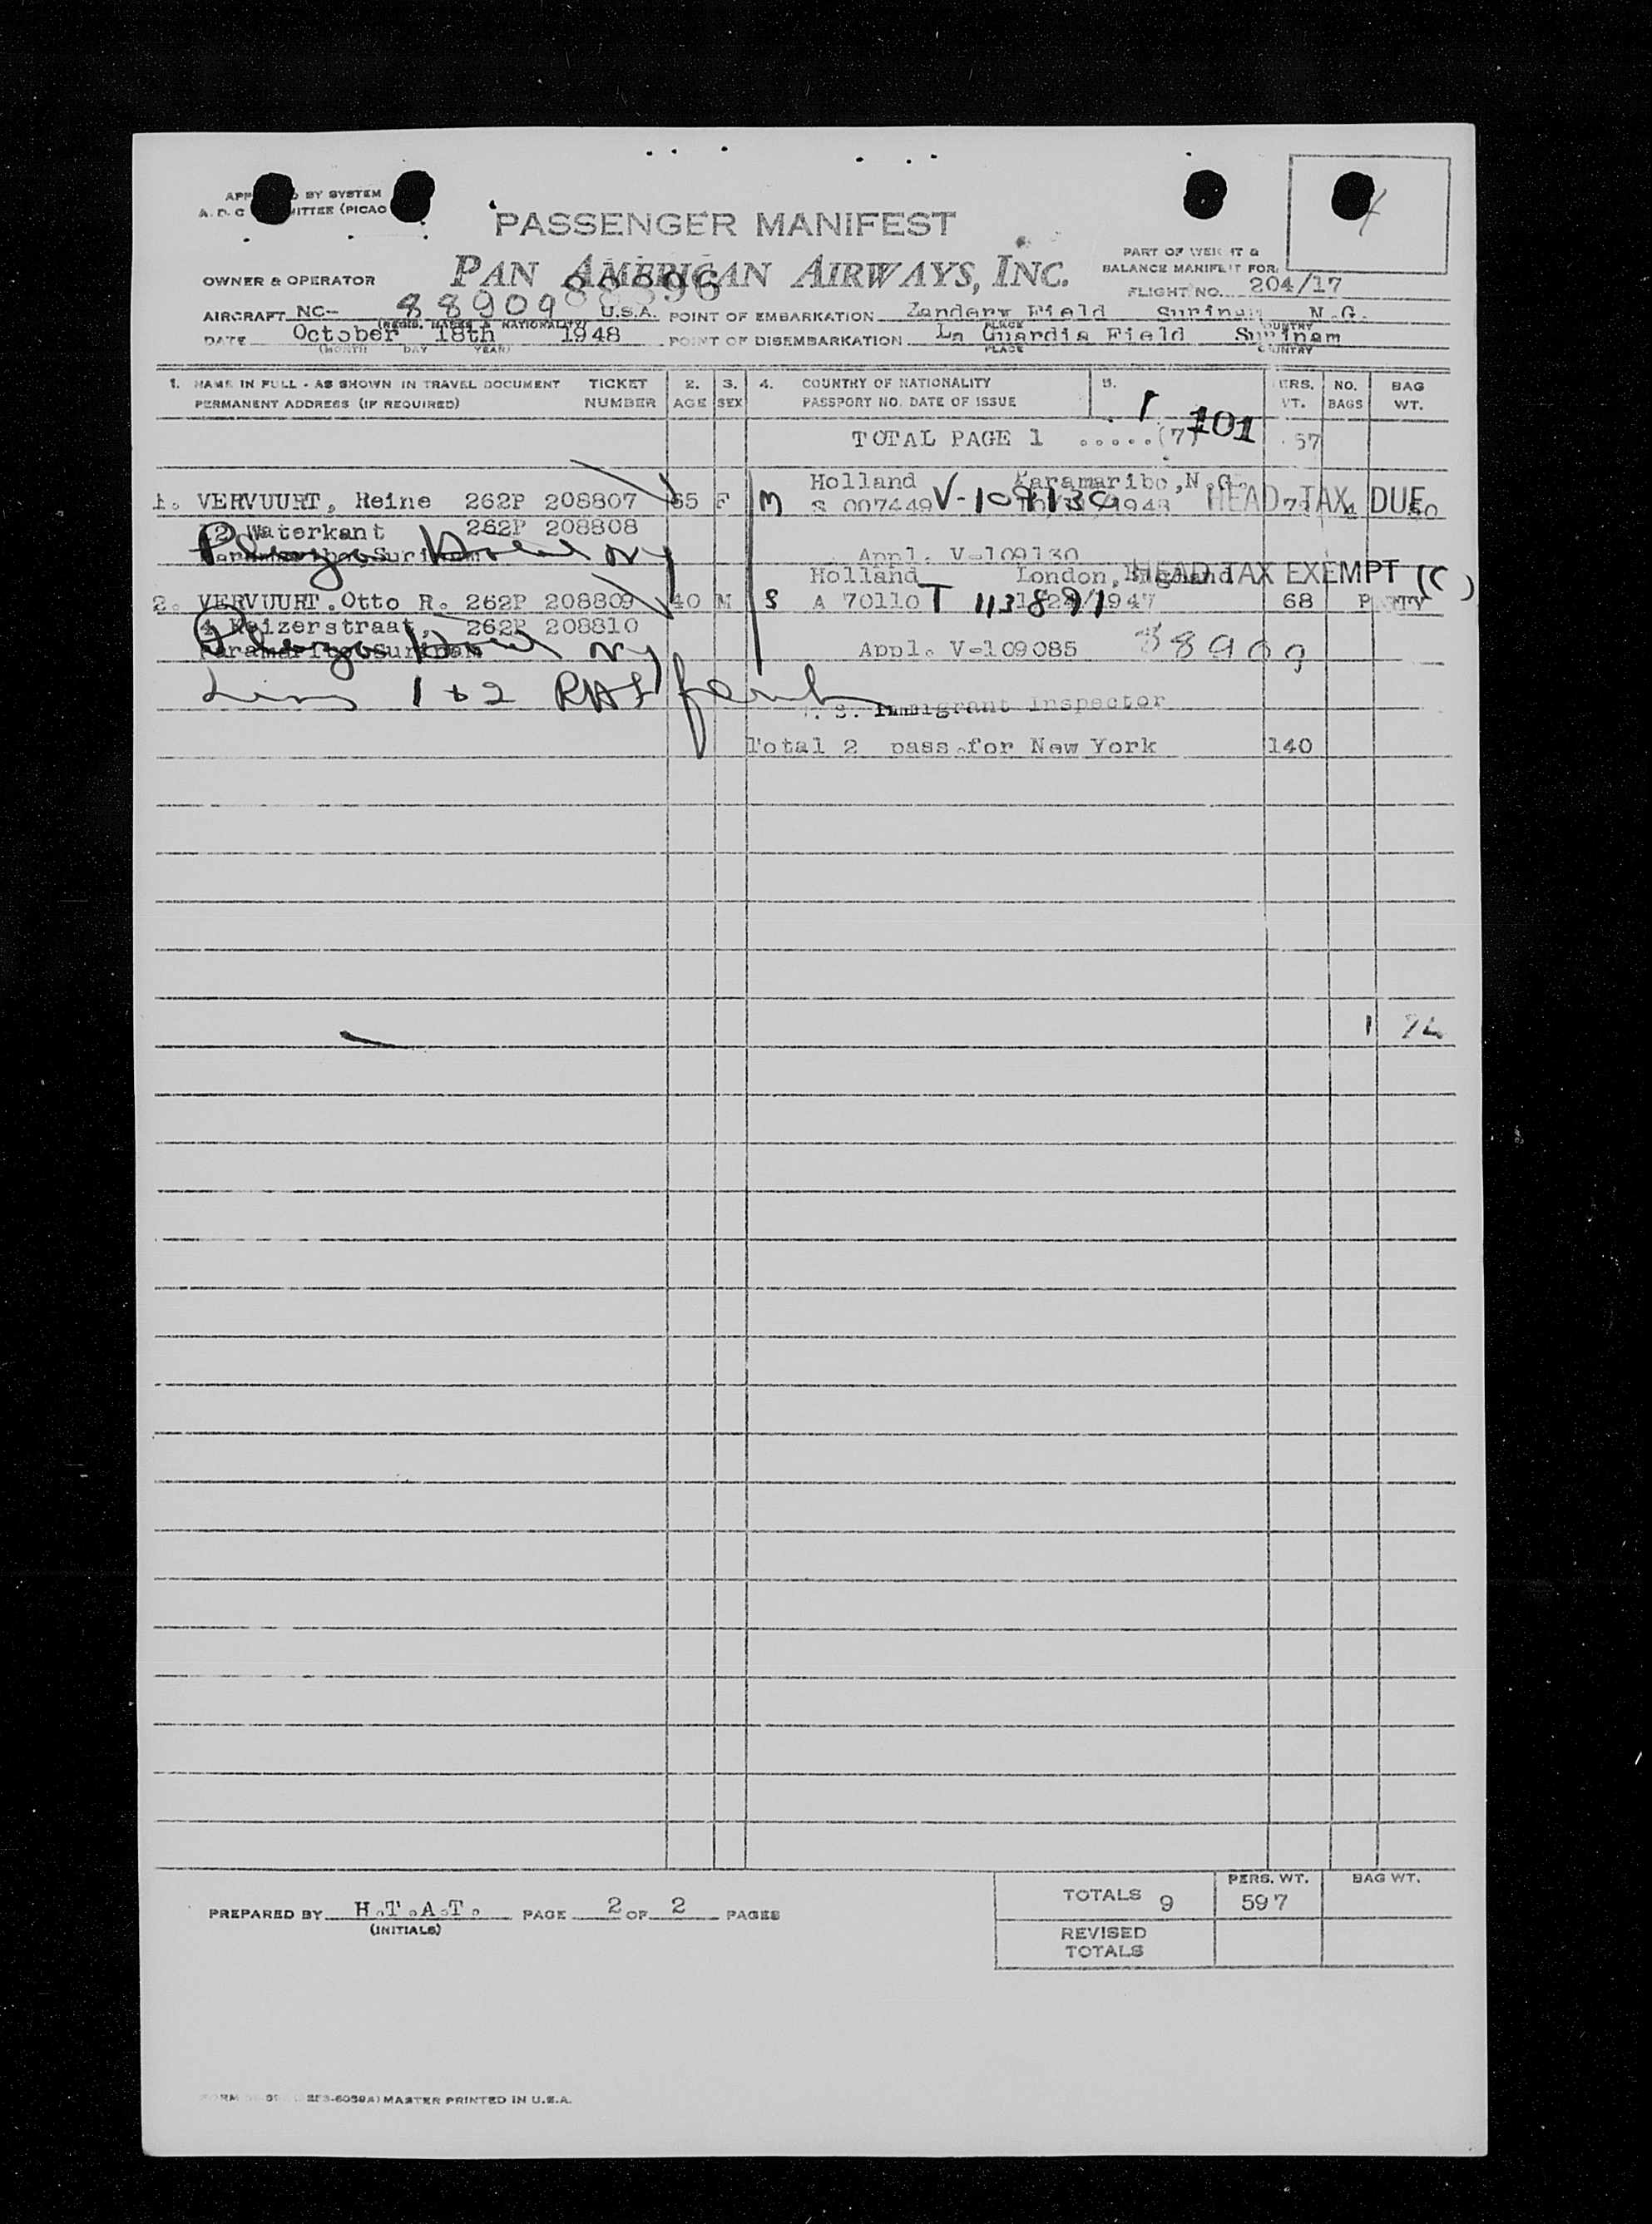 BY SYSTEM
A. D. C ITTEE (PICAO
PASSENGER MANIFEST
PART OF WEIGHT &
BALANCE MANIFEST FOR
OWNER & OPERATOR PAN AMERICAN AIRWAYS, INC.
88896
FLIGHT NO. 204/17
AIRCRAFT NC- 88909 U.S.A. POINT OF EMBARKATION Zandery Field Surinam N.G.
(REGIS. MARKS & NATIONALITY) PLACE COUNTRY
DATE October 18th 1948 POINT OF DISEMBARKATION La Guardia Field Surinam
(MONTH DAY YEAR) PLACE COUNTRY
1. NAME IN FULL - AS SHOWN IN TRAVEL DOCUMENT TICKET 2. 3. 4. COUNTRY OF NATIONALITY 5. PERS. NO. BAG
PERMANENT ADDRESS (IF REQUIRED) NUMBER AGE SEX PASSPORT NO. DATE OF ISSUE WT. BAGS WT.
TOTAL PAGE 1 .....(7) 101
Holland Paramaribo,N.G.
1. VERVUURT, Reine 262P 208807 F M S 007449 V-109130 1948 HEAD TAX DUE
12 Waterkant 262P 208808
Paramaribo, Surinam NY Appl. V-109130
Holland London, England HEAD TAX EXEMPT (C)
2. VERVUURT.Otto R. 262P 208809 40 M S A 70110 T 113891 1947 68
4 Keizerstraat, 262P 208810
Paramaribo, Surinam NY Appl. V-109085 88909
Lines 1 & 2
U. S. Immigrant Inspector
Total 2 pass.for New York 140
1
TOTALS 9 PERS. WT. 597 BAG WT.
PREPARED BY H.T.A.T. PAGE 2 OF 2 PAGES
(INITIALS)
REVISED
TOTALS
MASTER PRINTED IN U.S.A.